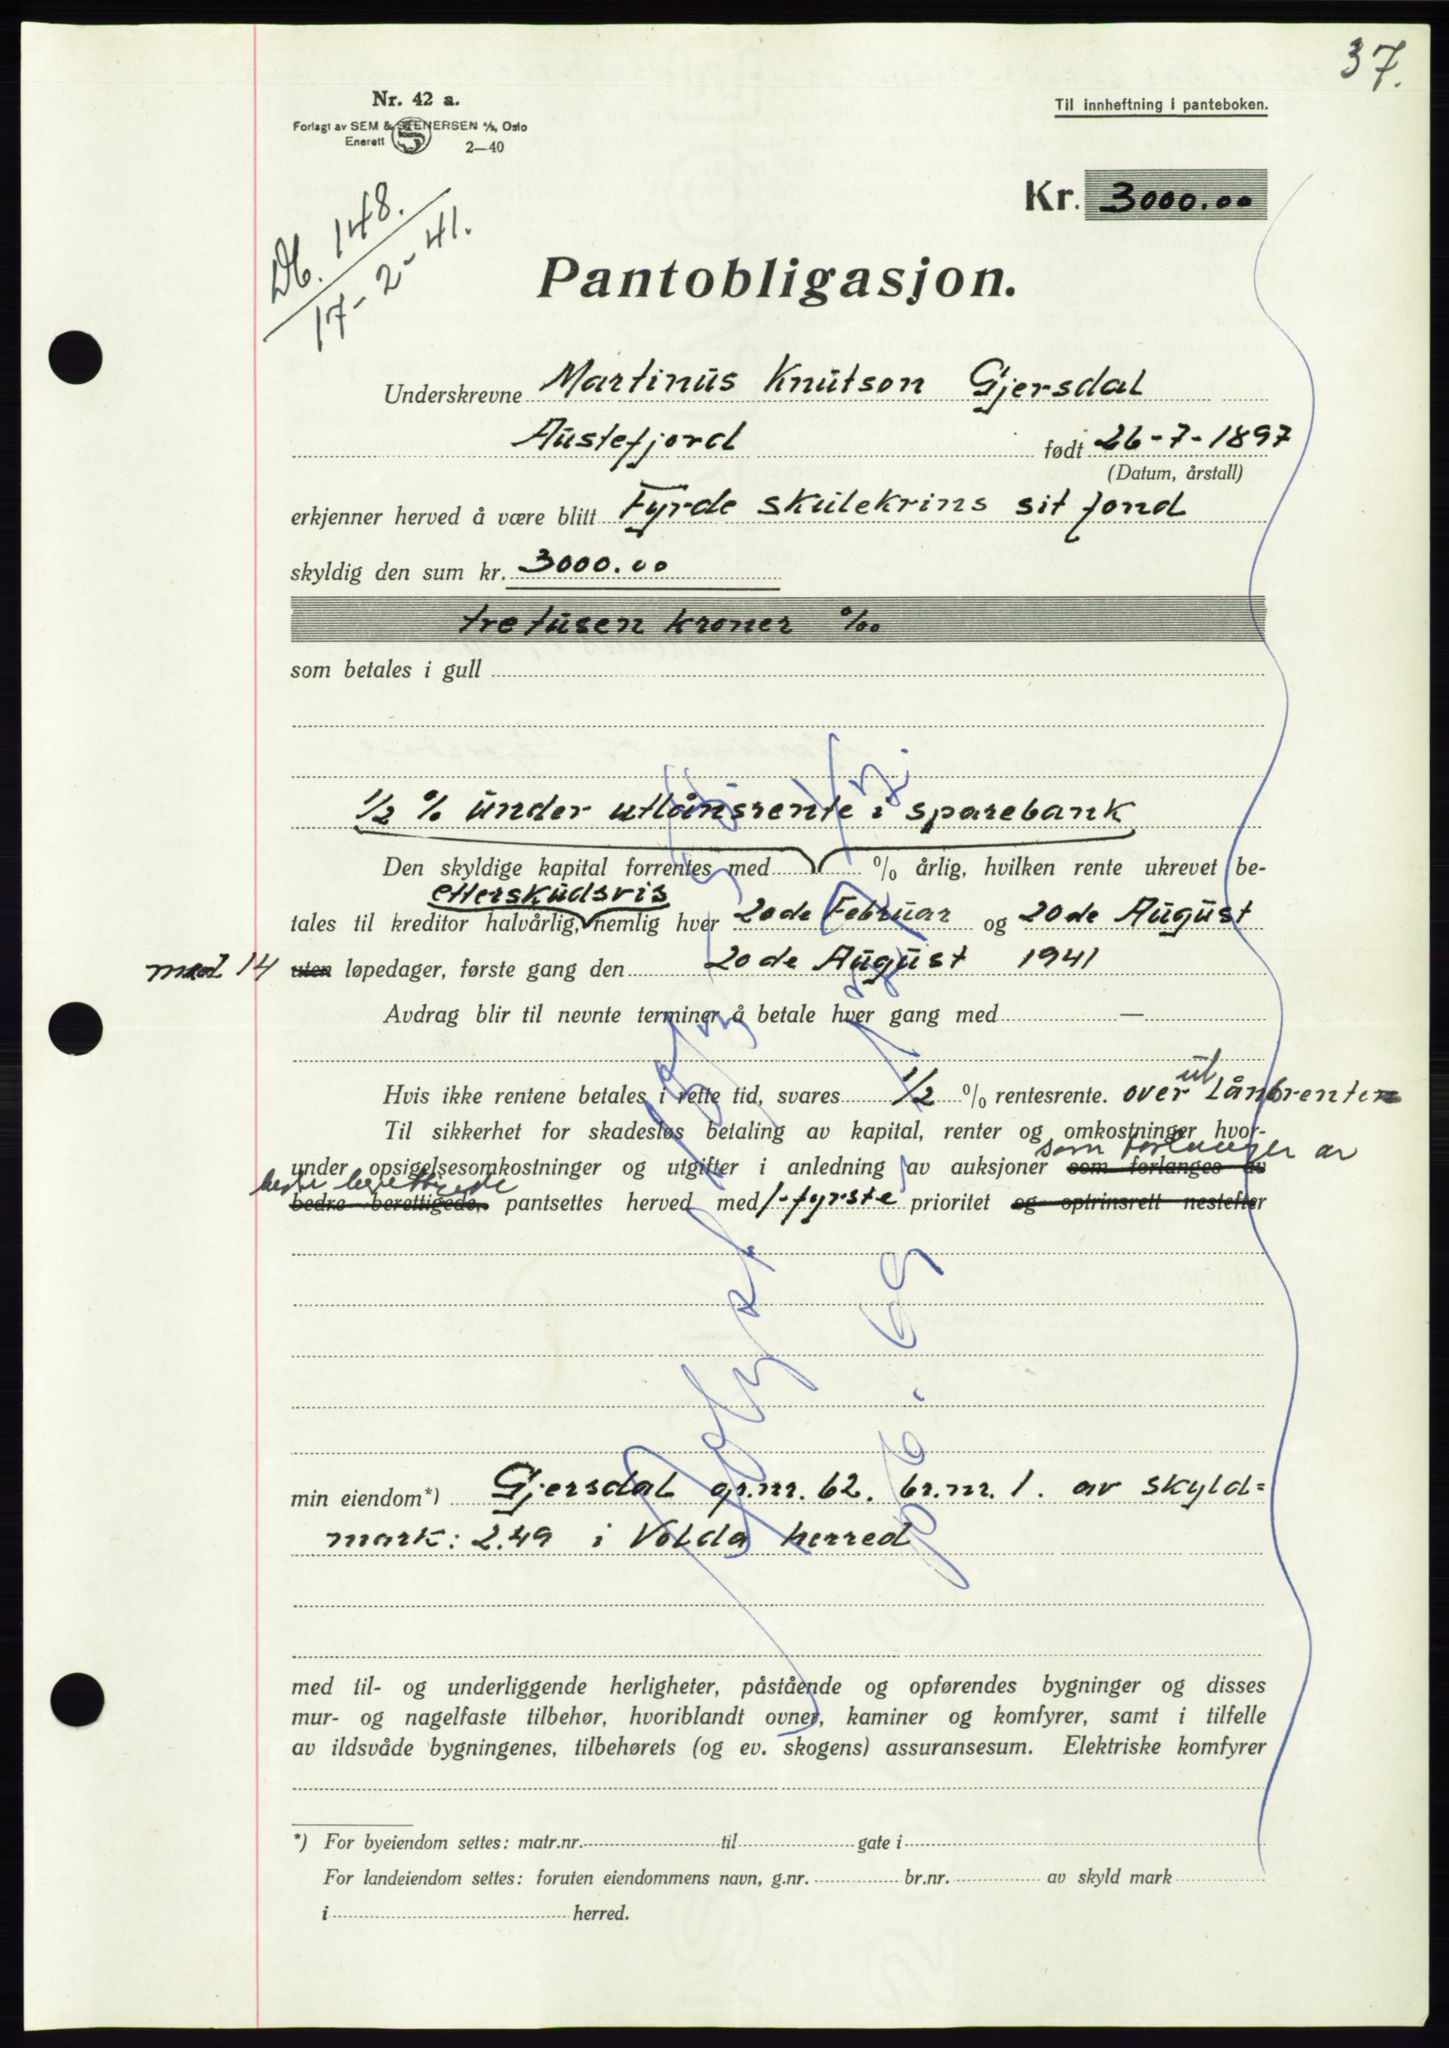 37.
Nr. 42 a.
Forlagt av SEM & STENERSEN A/S, Oslo
Enerett 2—40
Til innheftning i panteboken.
Kr. 3000.00
Db. 148.
17-2-41.
Pantobligasjon.
Underskrevne Martinus Knutson Gjersdal
Austefjord født 26-7-1897
(Datum, årstall)
erkjenner herved å være blitt Fyrde skulekrins sit fond
skyldig den sum kr. 3000.00
tretusen kroner %oo
som betales i gull
1/2 % under utlånsrente i sparebank
Den skyldige kapital forrentes med % årlig, hvilken rente ukrevet be-
etterskudsvis
tales til kreditor halvårlig, nemlig hver 20de Februar og 20de August
med 14 uten løpedager, første gang den 20de August 1941
Avdrag blir til nevnte terminer å betale hver gang med —
Hvis ikke rentene betales i rette tid, svares 1/2 % rentesrente. over utlånsrenten
Til sikkerhet for skadesløs betaling av kapital, renter og omkostninger hvor-
som forlanges av
under opsigelsesomkostninger og utgifter i anledning av auksjoner som forlanges av
bedre berettigede
bedre berettigede, pantsettes herved med 1-fyrste prioritet og optrinsrett nestefter
min eiendom*) Gjersdal gr.nr. 62. br.nr. 1. av skyld=
mark: 2.49 i Volda herred
med til- og underliggende herligheter, påstående og opførendes bygninger og disses
mur- og nagelfaste tilbehør, hvoriblandt ovner, kaminer og komfyrer, samt i tilfelle
av ildsvåde bygningenes, tilbehørets (og ev. skogens) assuransesum. Elektriske komfyrer
*) For byeiendom settes: matr.nr. til gate i
For landeiendom settes: foruten eiendommens navn, g.nr. br.nr. av skyld mark
i herred.